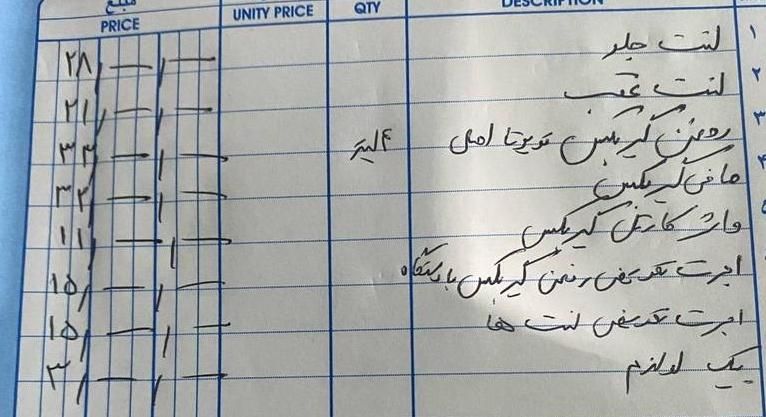 مبلغ PRICE UNITY PRICE QTY DESCRIPTION
۱ لنت جلو ۲۸/—/—
۲ لنت عقب ۲۱/—/—
۳ روغن گیربکس تویوتا اصل ۴ لیتر ۳۲/—/—
۴ صافی گیربکس ۳۲/—/—
واشر کارتل گیربکس ۱۱/—/—
اجرت تعویض روغن گیربکس با دستگاه ۱۵/—/—
اجرت تعویض لنت ها ۱۵/—/—
پیک لوازم ۳/—/—